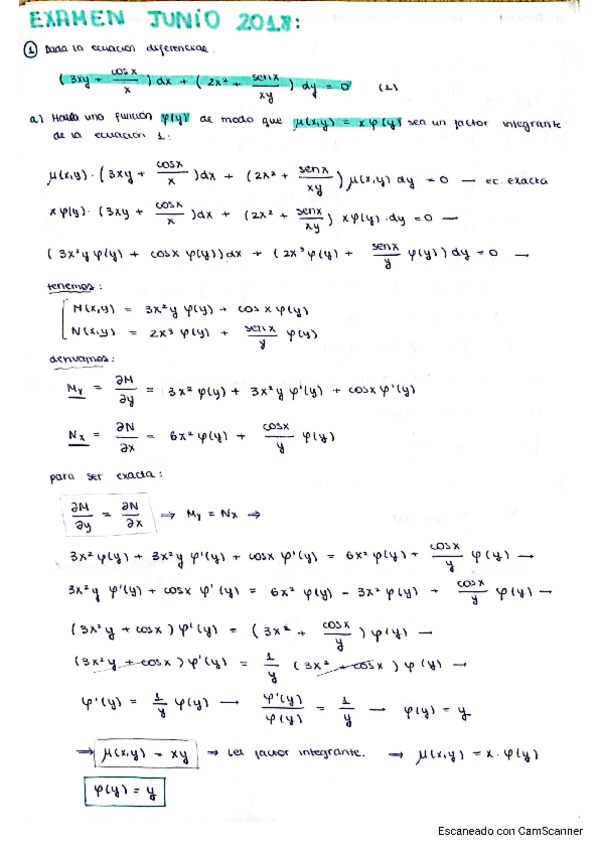 EXAMEN JUNIO 2018:
① Dada la ecuacion diferencial.
(3xy + cosx/x) dx + (2x² + senx/xy) dy = 0 (1)
a) Halla una función φ(y) de modo que μ(x,y) = xφ(y) sea un factor integrante
de la ecuacion 1:
μ(x,y)·(3xy + cosx/x) dx + (2x² + senx/xy) μ(x,y) dy = 0 — ec. exacta
xφ(y)·(3xy + cosx/x) dx + (2x² + senx/xy) xφ(y)·dy = 0 —
(3x²yφ(y) + cosx φ(y)) dx + (2x³φ(y) + senx/y φ(y)) dy = 0 →
tenemos:
M(x,y) = 3x²y φ(y) + cosx φ(y)
N(x,y) = 2x³ φ(y) + senx/y φ(y)
derivamos:
My = ∂M/∂y = 3x²φ(y) + 3x²y φ'(y) + cosx φ'(y)
Nx = ∂N/∂x = 6x²φ(y) + cosx/y φ(y)
para ser exacta:
∂M/∂y = ∂N/∂x ⇒ My = Nx ⇒
3x²φ(y) + 3x²y φ'(y) + cosx φ'(y) = 6x²φ(y) + cosx/y φ(y) →
3x²y φ'(y) + cosx φ'(y) = 6x² φ(y) - 3x² φ(y) + cosx/y φ(y) →
(3x²y + cosx) φ'(y) = (3x² + cosx/y) φ(y) —
(3x²y + cosx) φ'(y) = 1/y (3x² + cosx) φ(y) →
φ'(y) = 1/y φ(y) → φ'(y)/φ(y) = 1/y → φ(y) = y
⇒ μ(x,y) = xy ⇒ factor integrante. → μ(x,y) = x·φ(y)
φ(y) = y
Escaneado con CamScanner